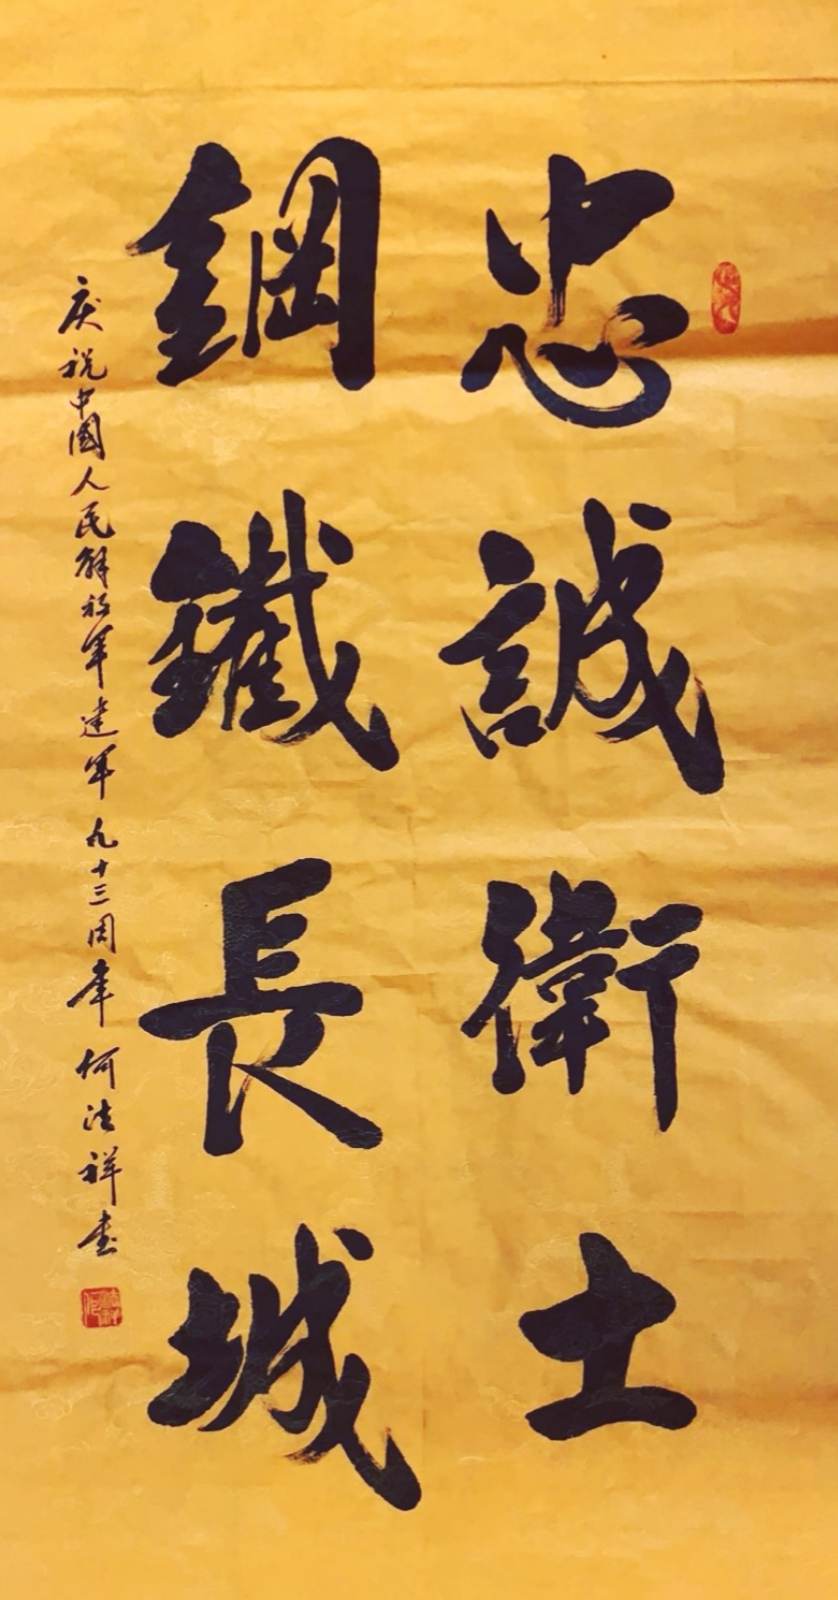 忠誠衛士
鋼鐵長城
庆祝中國人民解放军建军九十三周年 何法祥书